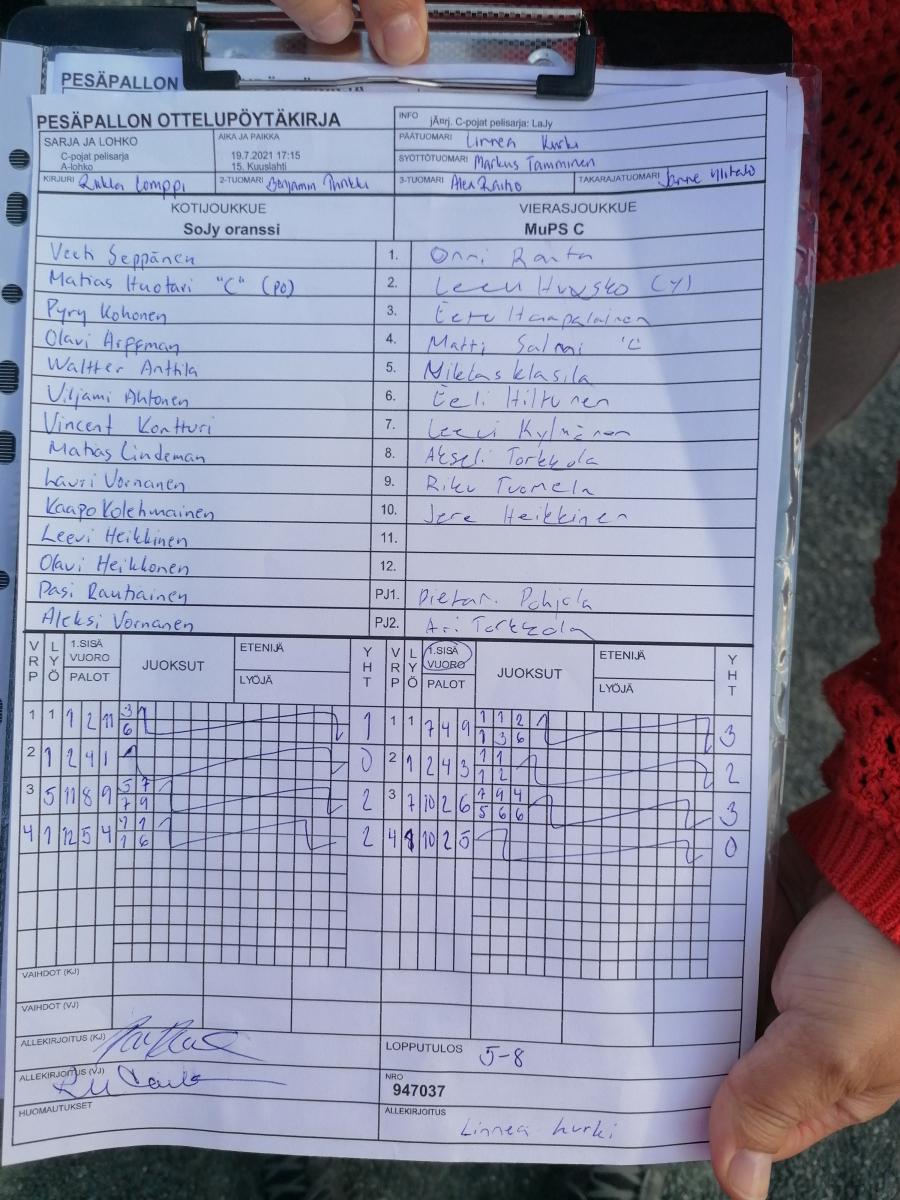 PESÄPALLON
PESÄPALLON OTTELUPÖYTÄKIRJA
INFO jÄnrj. C-pojat pelisarja: LaJy
SARJA JA LOHKO
C-pojat pelisarja
A-lohko
AIKA JA PAIKKA
19.7.2021 17:15
15. Kuuslahti
PÄÄTUOMARI Linnea Kurki
SYÖTTÖTUOMARI Markus Tamminen
KIRJURI Lomppi 2-TUOMARI Benjamin 3-TUOMARI Alex TAKARAJATUOMARI Janne
KOTIJOUKKUE VIERASJOUKKUE
SoJy oranssi MuPS C
Veeti Seppänen 1. Onni Ranta
Matias Huotari "C" (PO) 2. Leevi (Y)
Pyry Kohonen 3. Eetu Haapalainen
Olavi Arffman 4. Matti Salmi "C
Waltter Anttila 5. Niklas Klasila
Viljami Ahtonen 6. Eeli Hiltunen
Vincent Kontturi 7. Leevi Kylmänen
Matias Lindeman 8. Akseli Torkkola
Lauri Vornanen 9. Riku Tuomela
Kaapo Kolehmainen 10. Jere Heikkinen
Leevi Heikkinen 11.
Olavi Heikkonen 12.
Pasi Rautiainen PJ1. Pohjola
Aleksi Vornanen PJ2. Ari Torkkola
VRP LYÖ 1.SISÄ VUORO PALOT JUOKSUT ETENIJÄ LYÖJÄ YHT VRP LYÖ 1.SISÄ VUORO PALOT JUOKSUT ETENIJÄ LYÖJÄ YHT
1 1 1 2 11 3 1 1 1 7 4 9 1 1 2 3
6 1 3 6
2 1 2 4 1 0 2 1 2 4 3 1 1 2
1 2
3 5 11 8 9 5 7 2 3 7 10 2 6 7 9 4 3
7 9 5 6 6
4 1 12 5 4 1 1 2 4 8 10 2 5 0
1 6
VAIHDOT (KJ)
VAIHDOT (VJ)
ALLEKIRJOITUS (KJ)
LOPPUTULOS 5-8
ALLEKIRJOITUS (VJ)
NRO
947037
HUOMAUTUKSET
ALLEKIRJOITUS
Linnea Kurki